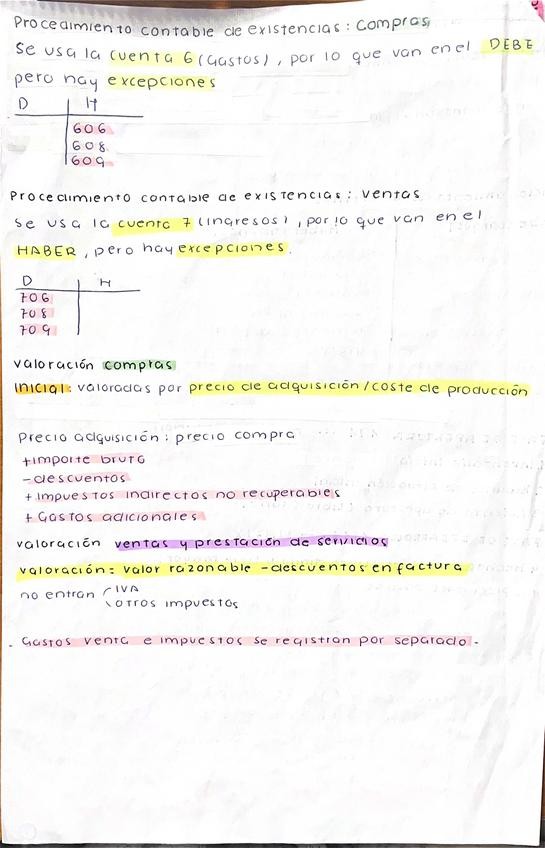 Procedimiento contable de existencias: Compras
Se usa la cuenta 6 (Gastos), por lo que van en el DEBE
pero hay excepciones
D H
606
608
609
Procedimiento contable de existencias: ventas
se usa la cuenta 7 (ingresos), por lo que van en el
HABER, pero hay excepciones.
D H
706
708
709
valoración compras
inicial: valoradas por precio de adquisición/coste de producción
Precio adquisición: precio compra
+importe bruto
-descuentos
+impuestos indirectos no recuperables
+Gastos adicionales
valoración ventas y prestación de servicios
valoración= valor razonable -descuentos en factura
no entran IVA
otros impuestos
- Gastos venta e impuestos se registran por separado -